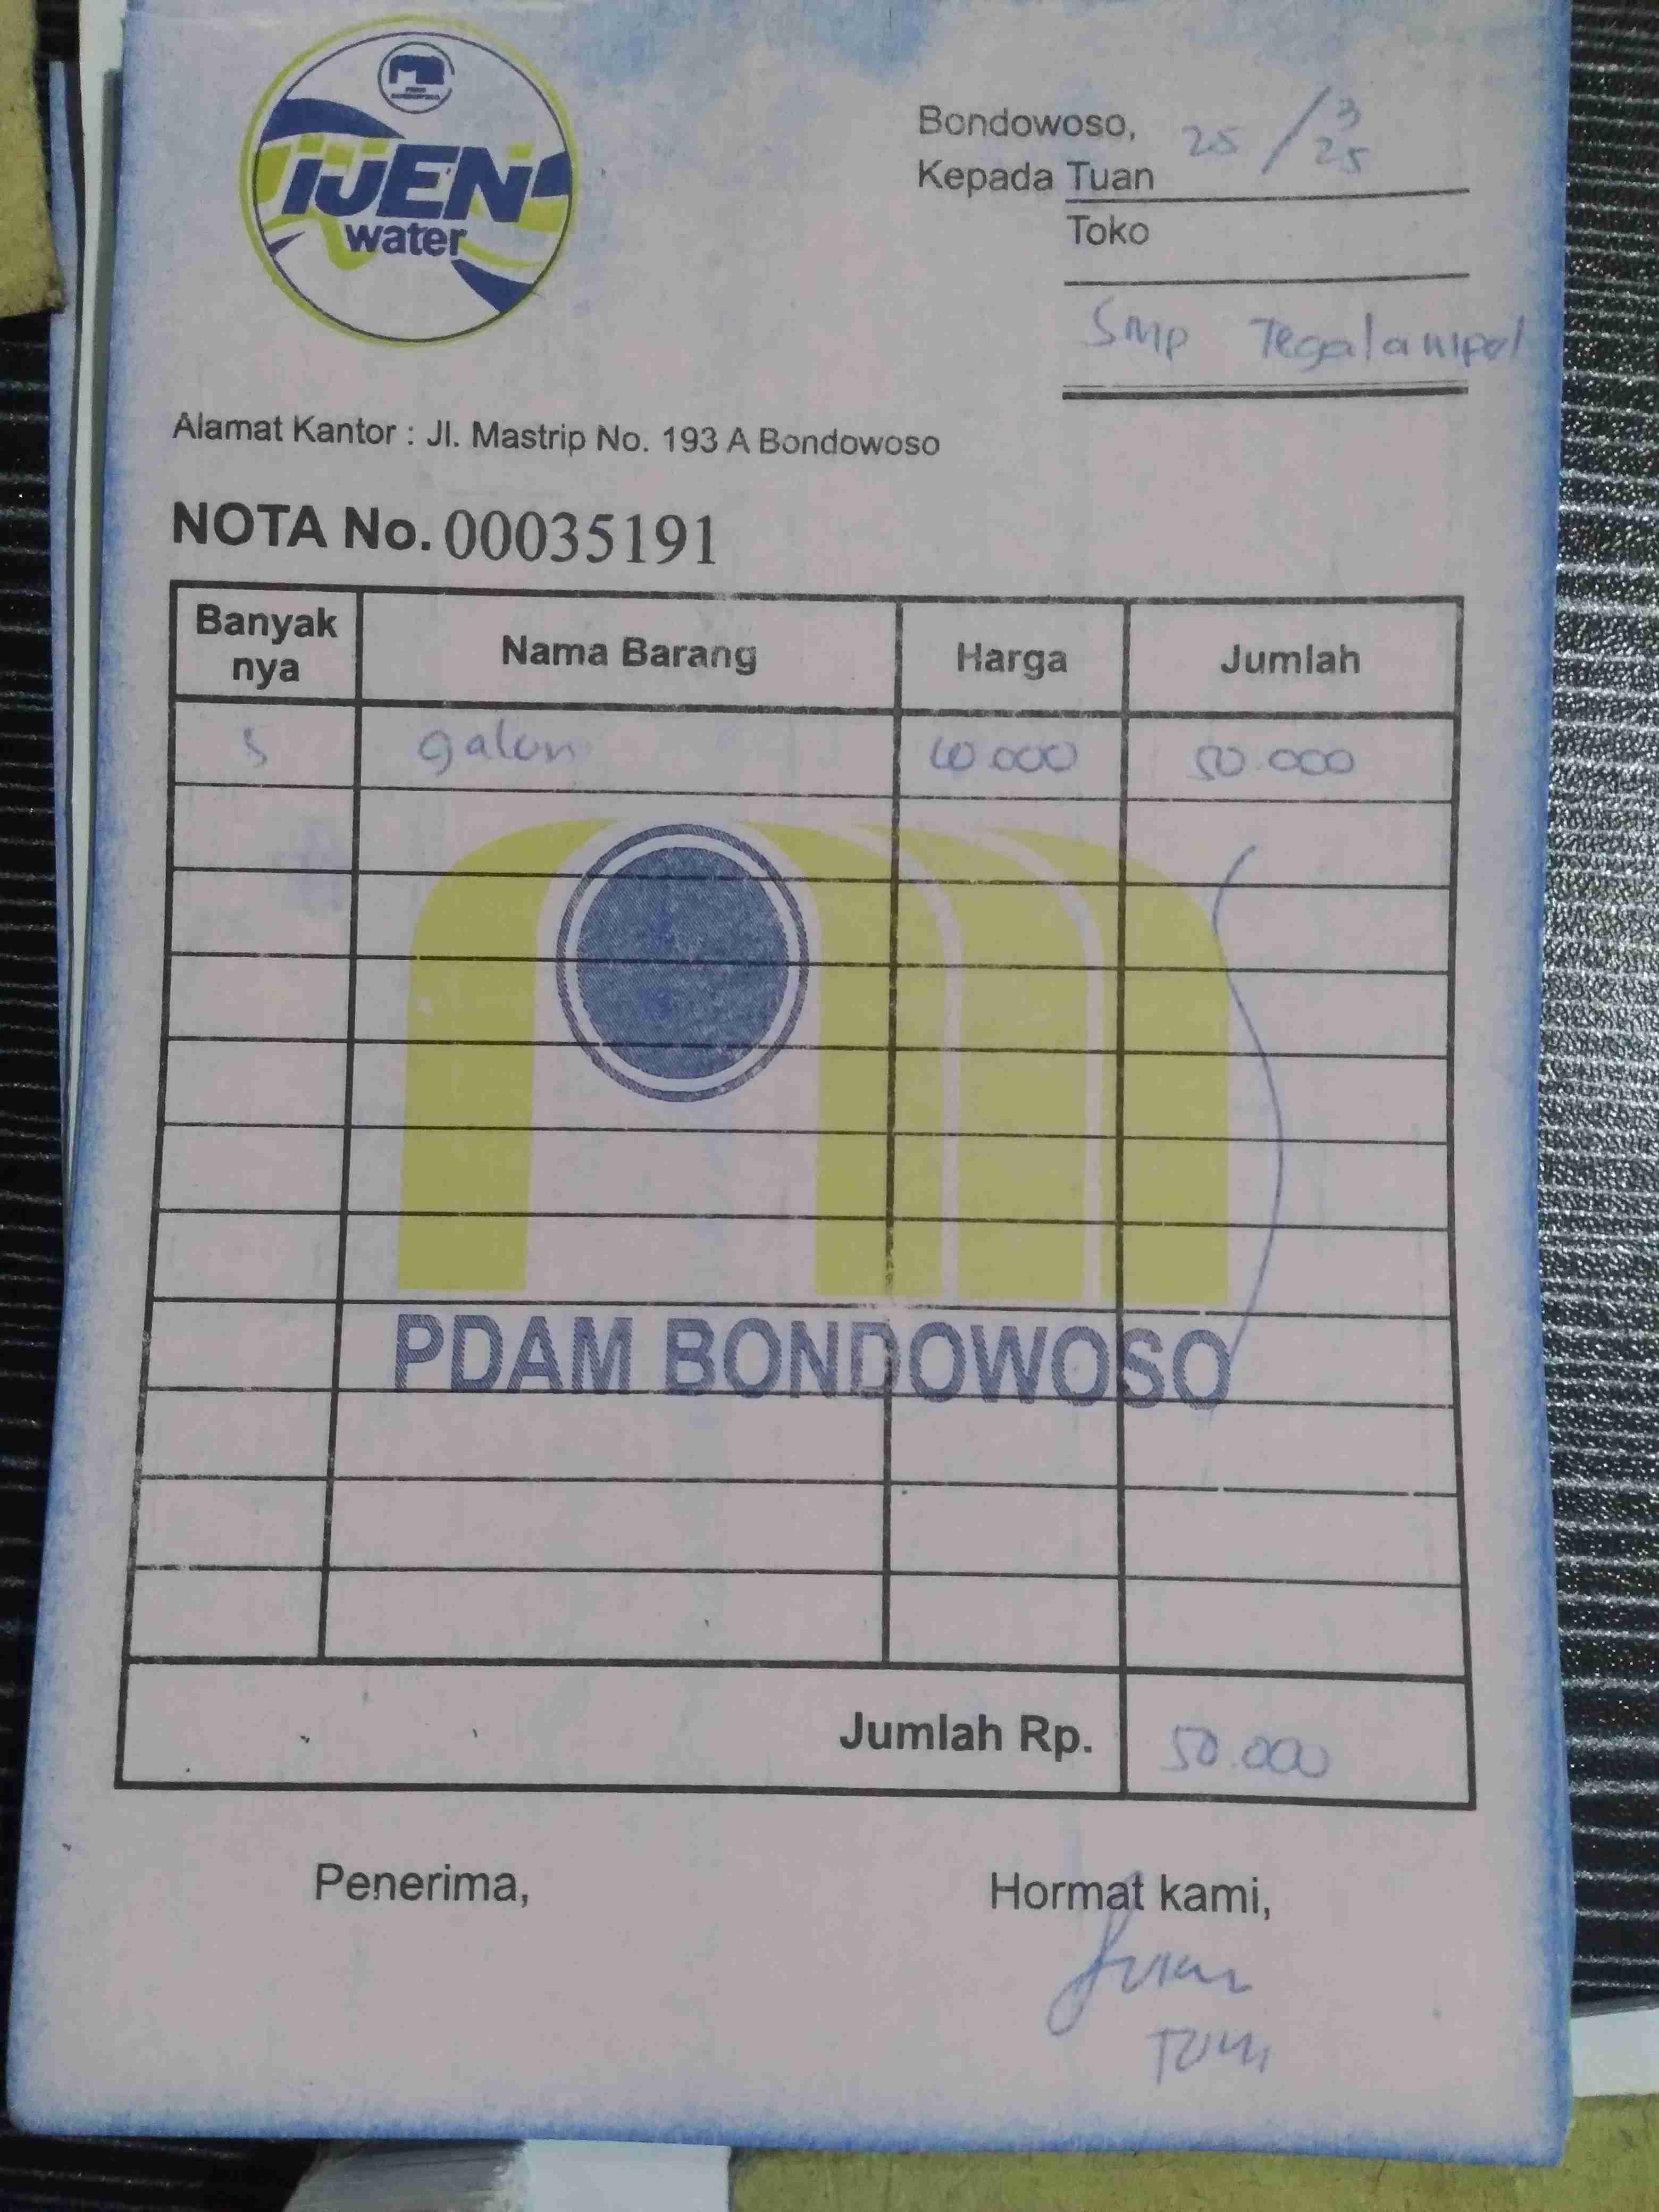 IJEN
water
Bondowoso, 25/3/25
Kepada Tuan
Toko
SMP Tegalampel
Alamat Kantor : Jl. Mastrip No. 193 A Bondowoso
NOTA No. 00035191
Banyak nya Nama Barang Harga Jumlah
5 galon 10.000 50.000
PDAM BONDOWOSO
Jumlah Rp. 50.000
Penerima, Hormat kami,